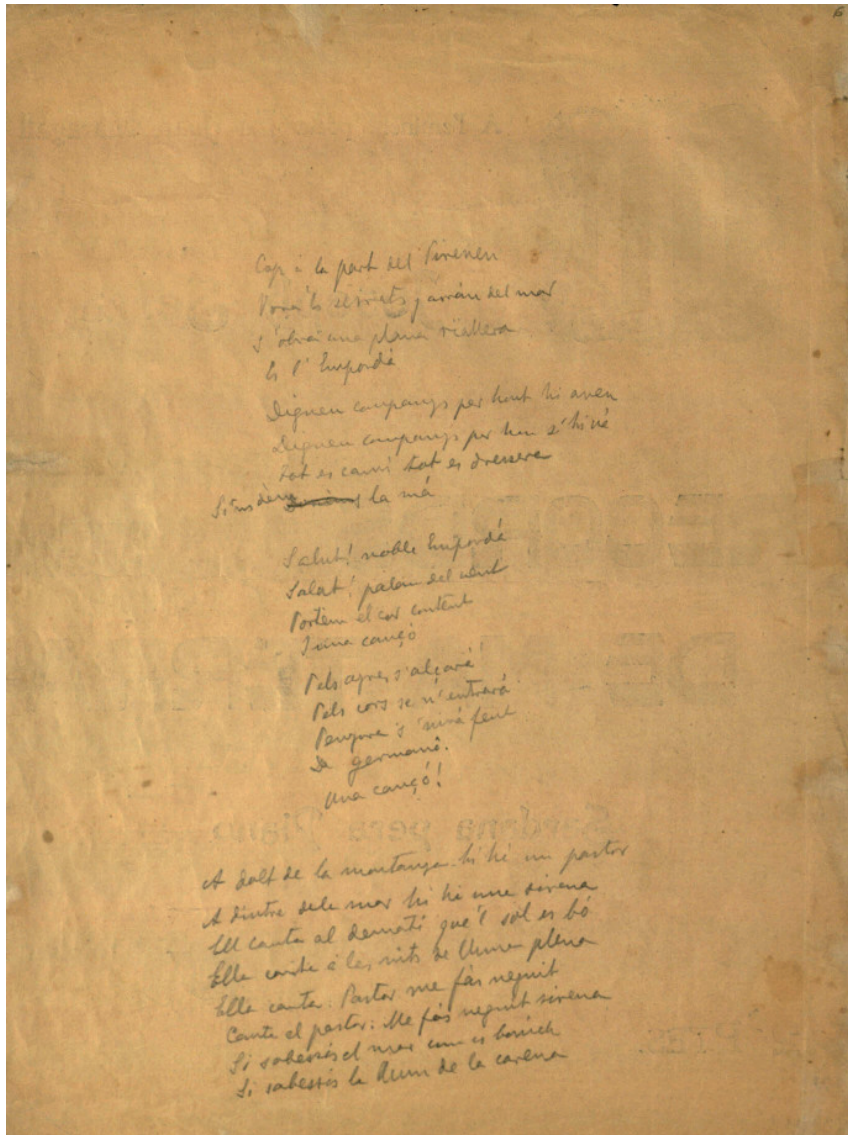 Cap à la part del Pireneu
Vora 'ls serrats y arran del mar
S'obra una plana riallera
Es l'Empordà
Digueu companys per hont hi aneu
Digueu companys per hon s'hi vá
Tot es camí tot es dressera
Si 'ns dèm la má
Salut! noble Empordá
Salut! palau del vent
Portém el cor content
I una cançó
Pels ayres s'alçará!
Pels cors se n'entrará
Penyora s'anirá fent
De germanó.
Una cançó!
A dalt de la montanya hi há un pastor
A dintre dela mar hi há una sirena
Ell canta al dematí que'l sol es bó
Ella canta á les nits de lluna plena
Ella canta. Pastor me fás neguit
Canta el pastor: Me fás neguit sirena
Si sabessis el mar com es bonich
Si sabessis la llum de la carena